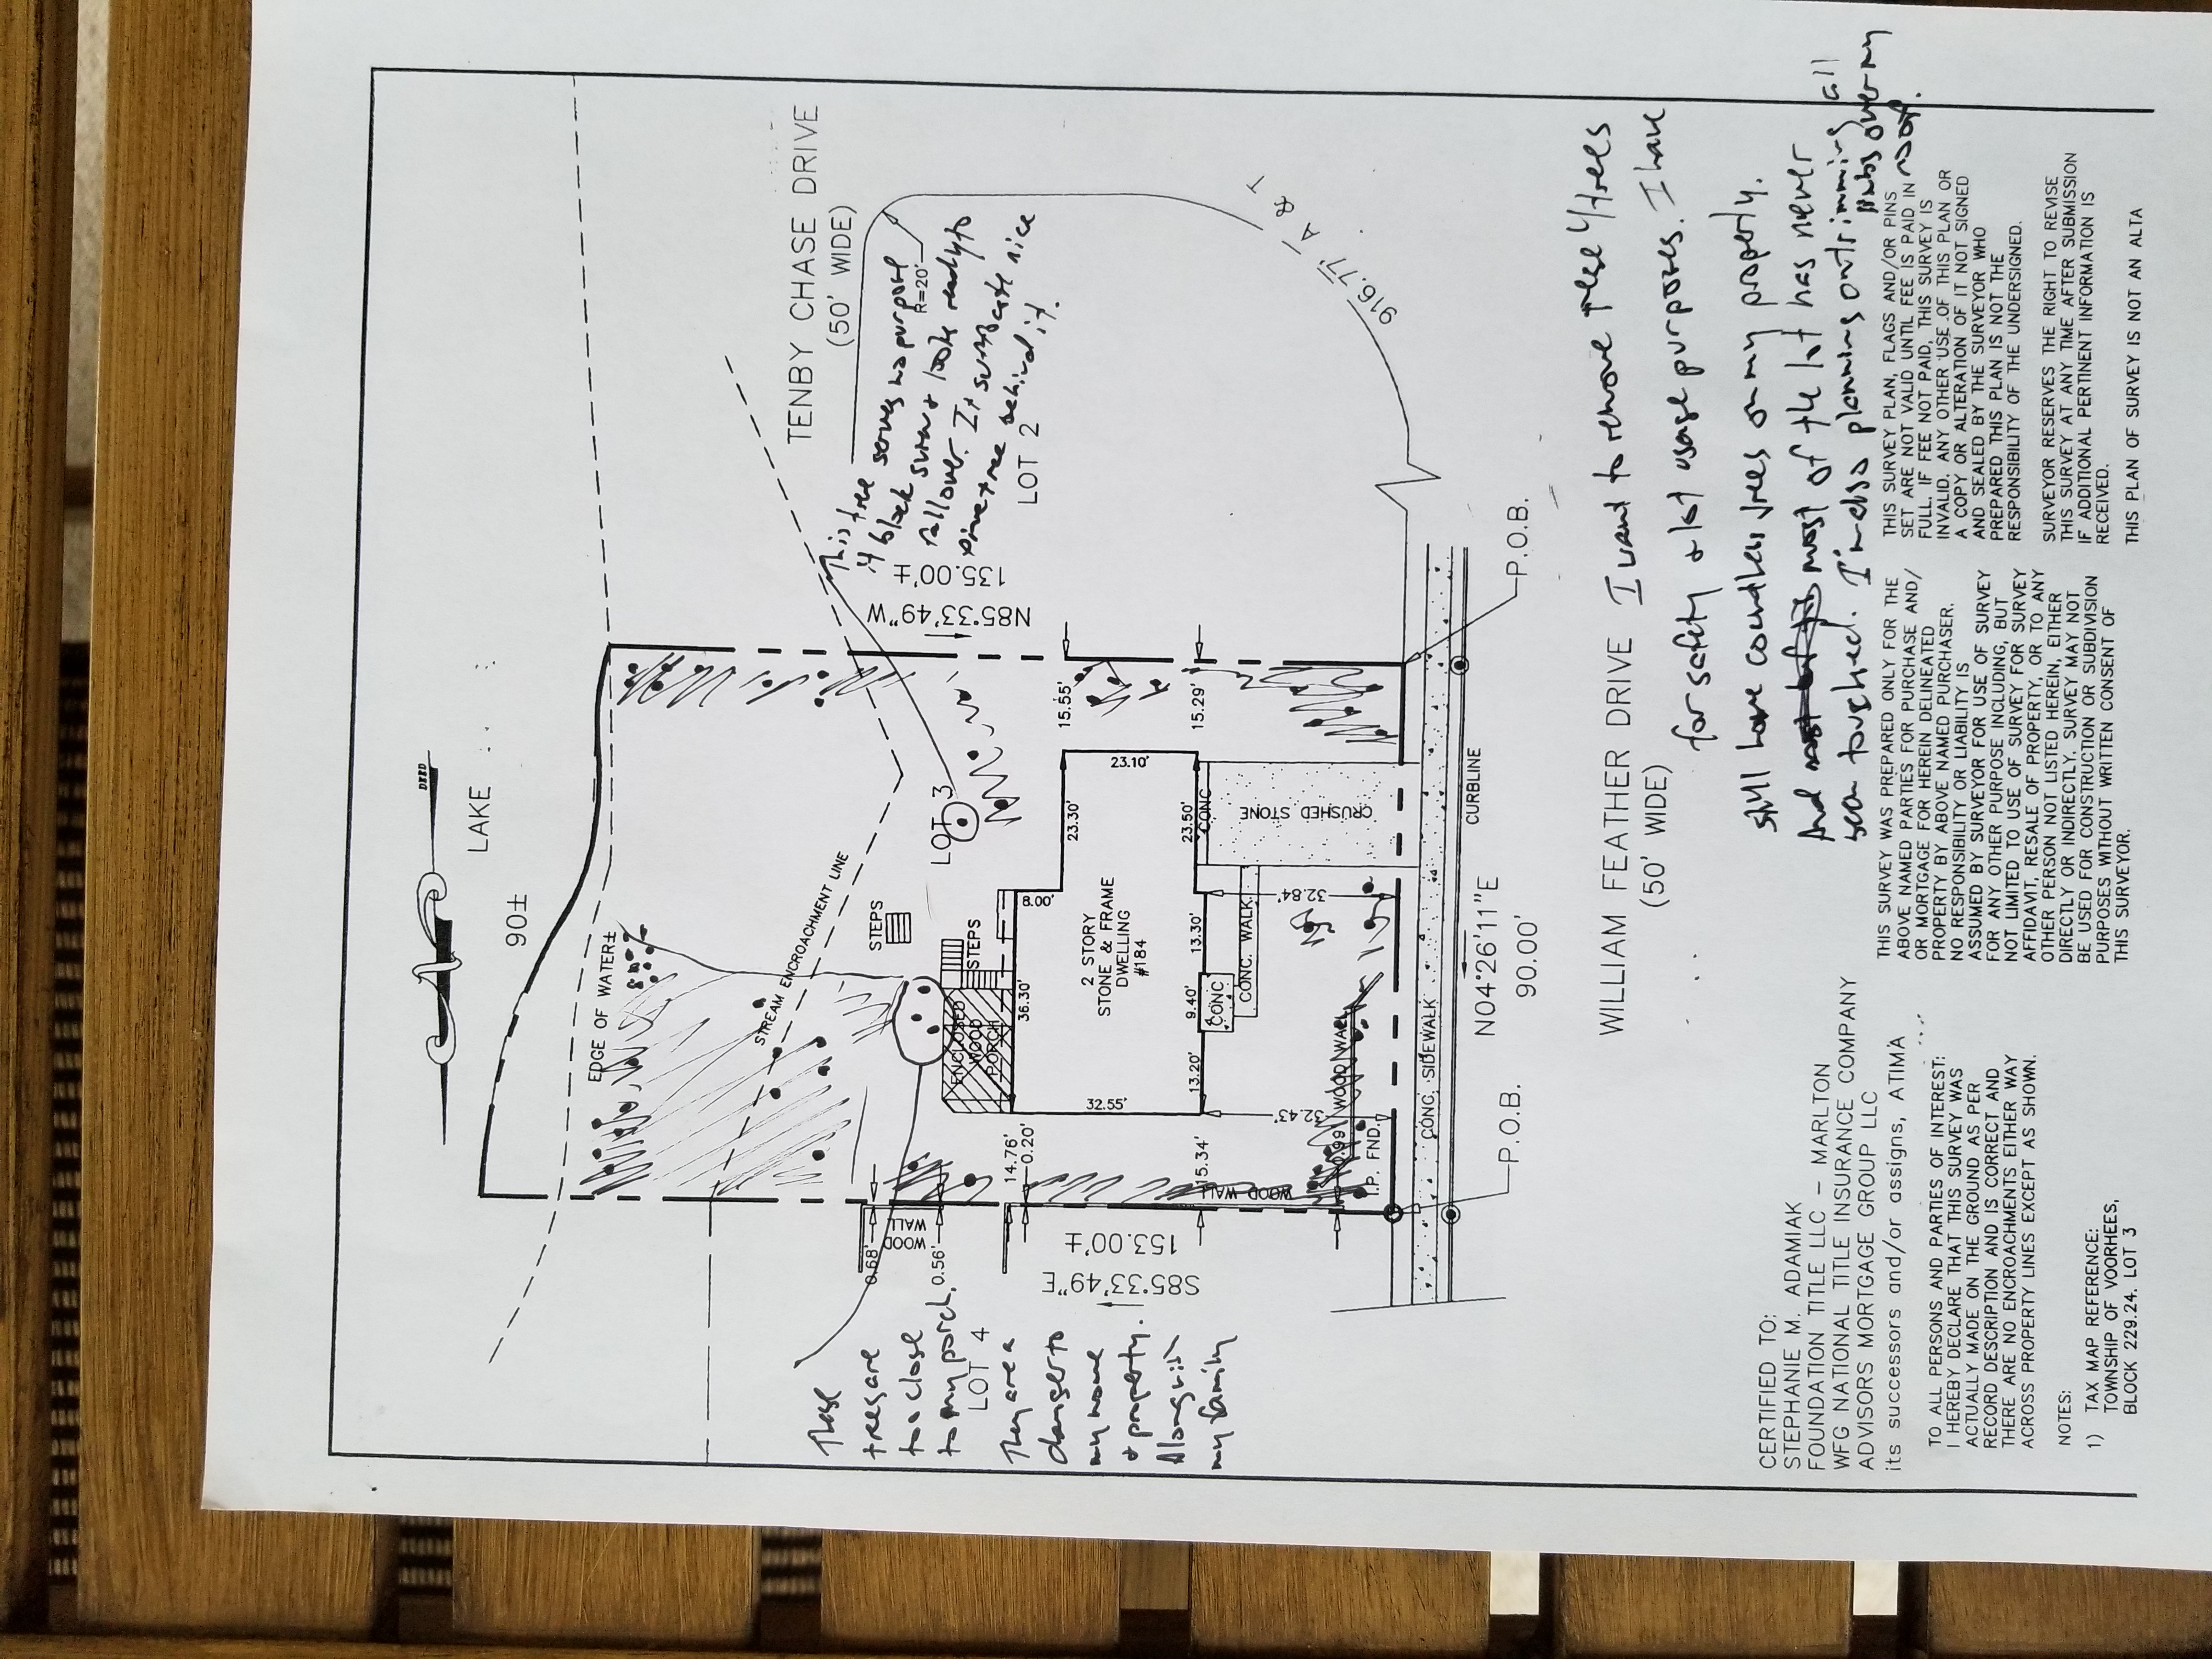 DEED
LAKE
90±
EDGE OF WATER±
STREAM ENCROACHMENT LINE
TENBY CHASE DRIVE
(50' WIDE)
R=20'
This tree serves no purpose
if black suren & looks ready to
fall over. It suffocate nice
pine tree behind it.
LOT 2
N85°33'49"W
135.00'±
916.77' A & T
LOT 3
STEPS
STEPS
ENCLOSED
WOOD
PORCH
15.55'
15.29'
23.10'
23.30'
23.50'
8.00'
36.30'
2 STORY
STONE & FRAME
DWELLING
#184
32.55'
13.30'
9.40'
13.20'
CONC
CONC
CONC. WALK
CRUSHED STONE
32.84'
32.43'
14.76'
0.20'
15.34'
WOOD WALL
WOOD WALL
0.99'
I.P. FND.
WOOD
WALL
0.68'
0.56'
S85°33'49"E
153.00'±
These
trees are
too close
to my porch.
LOT 4
They are a
danger to
my home
& property.
Alongwith
my family
CONC. SIDEWALK
CURBLINE
P.O.B.
P.O.B.
N04°26'11"E
90.00'
WILLIAM FEATHER DRIVE
(50' WIDE)
I want to remove these 4 trees
for safety & lot usage purposes. I have
still have countless trees on my property.
And most of the lot has never
been touched. I'm also planning on trimming all
limbs over my
roof.
CERTIFIED TO:
STEPHANIE M. ADAMIAK
FOUNDATION TITLE LLC – MARLTON
WFG NATIONAL TITLE INSURANCE COMPANY
ADVISORS MORTGAGE GROUP LLC
its successors and/or assigns, ATIMA
TO ALL PERSONS AND PARTIES OF INTEREST:
I HEREBY DECLARE THAT THIS SURVEY WAS
ACTUALLY MADE ON THE GROUND AS PER
RECORD DESCRIPTION AND IS CORRECT AND
THERE ARE NO ENCROACHMENTS EITHER WAY
ACROSS PROPERTY LINES EXCEPT AS SHOWN.
NOTES:
1) TAX MAP REFERENCE:
TOWNSHIP OF VOORHEES,
BLOCK 229.24, LOT 3
THIS SURVEY WAS PREPARED ONLY FOR THE
ABOVE NAMED PARTIES FOR PURCHASE AND/
OR MORTGAGE FOR HEREIN DELINEATED
PROPERTY BY ABOVE NAMED PURCHASER.
NO RESPONSIBILITY OR LIABILITY IS
ASSUMED BY SURVEYOR FOR USE OF SURVEY
FOR ANY OTHER PURPOSE INCLUDING, BUT
NOT LIMITED TO USE OF SURVEY FOR SURVEY
AFFIDAVIT, RESALE OF PROPERTY, OR TO ANY
OTHER PERSON NOT LISTED HEREIN, EITHER
DIRECTLY OR INDIRECTLY. SURVEY MAY NOT
BE USED FOR CONSTRUCTION OR SUBDIVISION
PURPOSES WITHOUT WRITTEN CONSENT OF
THIS SURVEYOR.
THIS SURVEY PLAN, FLAGS AND/OR PINS
SET ARE NOT VALID UNTIL FEE IS PAID IN
FULL. IF FEE NOT PAID, THIS SURVEY IS
INVALID. ANY OTHER USE OF THIS PLAN OR
A COPY OR ALTERATION OF IT NOT SIGNED
AND SEALED BY THE SURVEYOR WHO
PREPARED THIS PLAN IS NOT THE
RESPONSIBILITY OF THE UNDERSIGNED.
SURVEYOR RESERVES THE RIGHT TO REVISE
THIS SURVEY AT ANY TIME AFTER SUBMISSION
IF ADDITIONAL PERTINENT INFORMATION IS
RECEIVED.
THIS PLAN OF SURVEY IS NOT AN ALTA